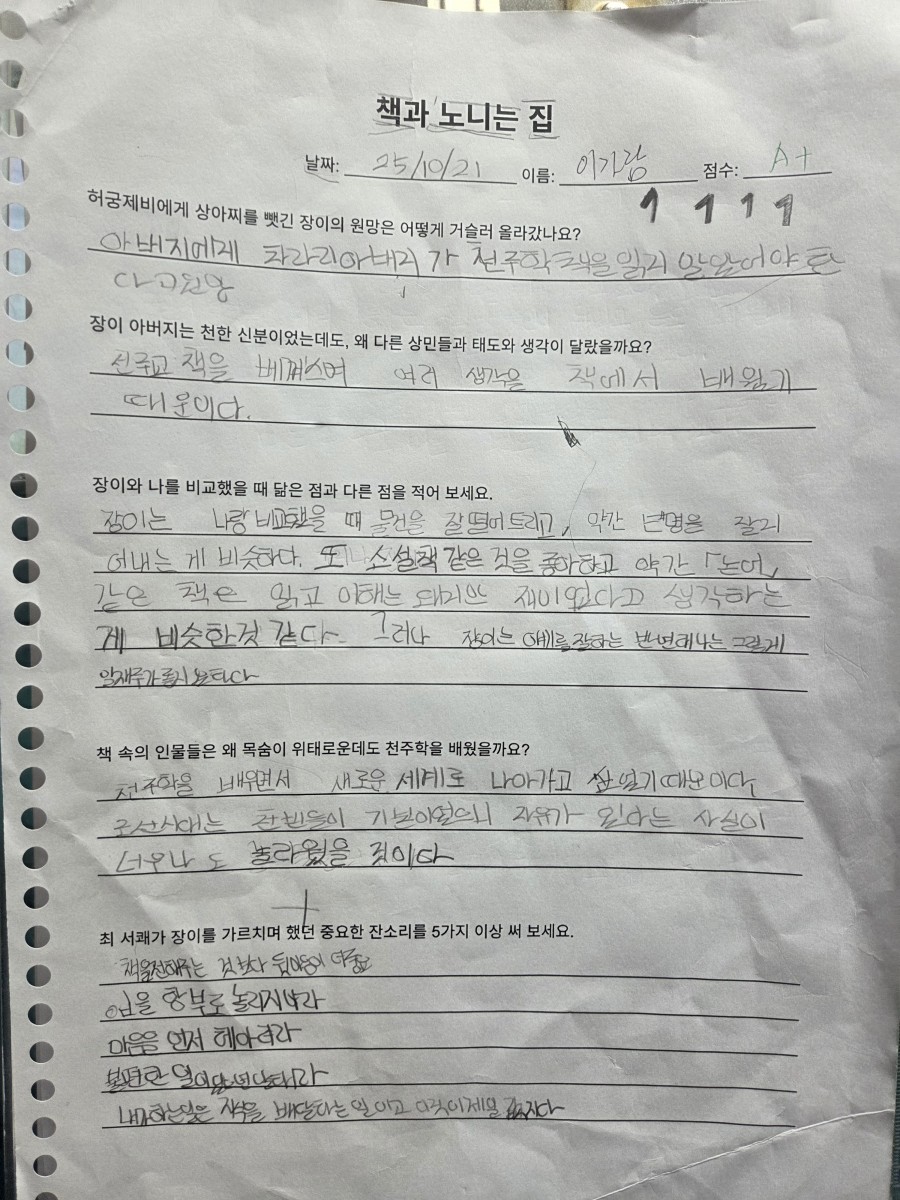 책과 노니는 집
날짜: 25/10/21 이름: 이가람 점수: A+
1 1 1 1
허궁제비에게 상아찌를 뺏긴 장이의 원망은 어떻게 거슬러 올라갔나요?
아버지에게 차라리 아버지가 천주학책을 읽지 말았어야 한
다고 원망
장이 아버지는 천한 신분이었는데도, 왜 다른 상민들과 태도와 생각이 달랐을까요?
책을 여러 생각을 책에서 배웠기
때문이다.
장이와 나를 비교했을 때 닮은 점과 다른 점을 적어 보세요.
장이는 나랑 비교했을 때 물건을 잘 떨어트리고, 약간 변명을 잘
내는 게 비슷하다. 또 소설책 같은 것을 좋아하고 약간 「논어」
같은 책은 읽고 이해는 재미있다고 생각하는
게 비슷한것 같다. 그러나 장이는 잘하는 반면에 나는 그렇게
책 속의 인물들은 왜 목숨이 위태로운데도 천주학을 배웠을까요?
천주학을 배우면서 새로운 세계로 나아가고 때문이다.
조선시대는 자유가 사실이
너무나도 놀라웠을 것이다
최 서쾌가 장이를 가르치며 했던 중요한 잔소리를 5가지 이상 써 보세요.
책을 전해주는 것보다 더 중요
입을 함부로 놀리지 마라
마음을 먼저 헤아려라
내가 하는 일은 책을 배달하는 일이고